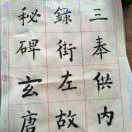 三奉供内
録街左故
秘碑玄唐